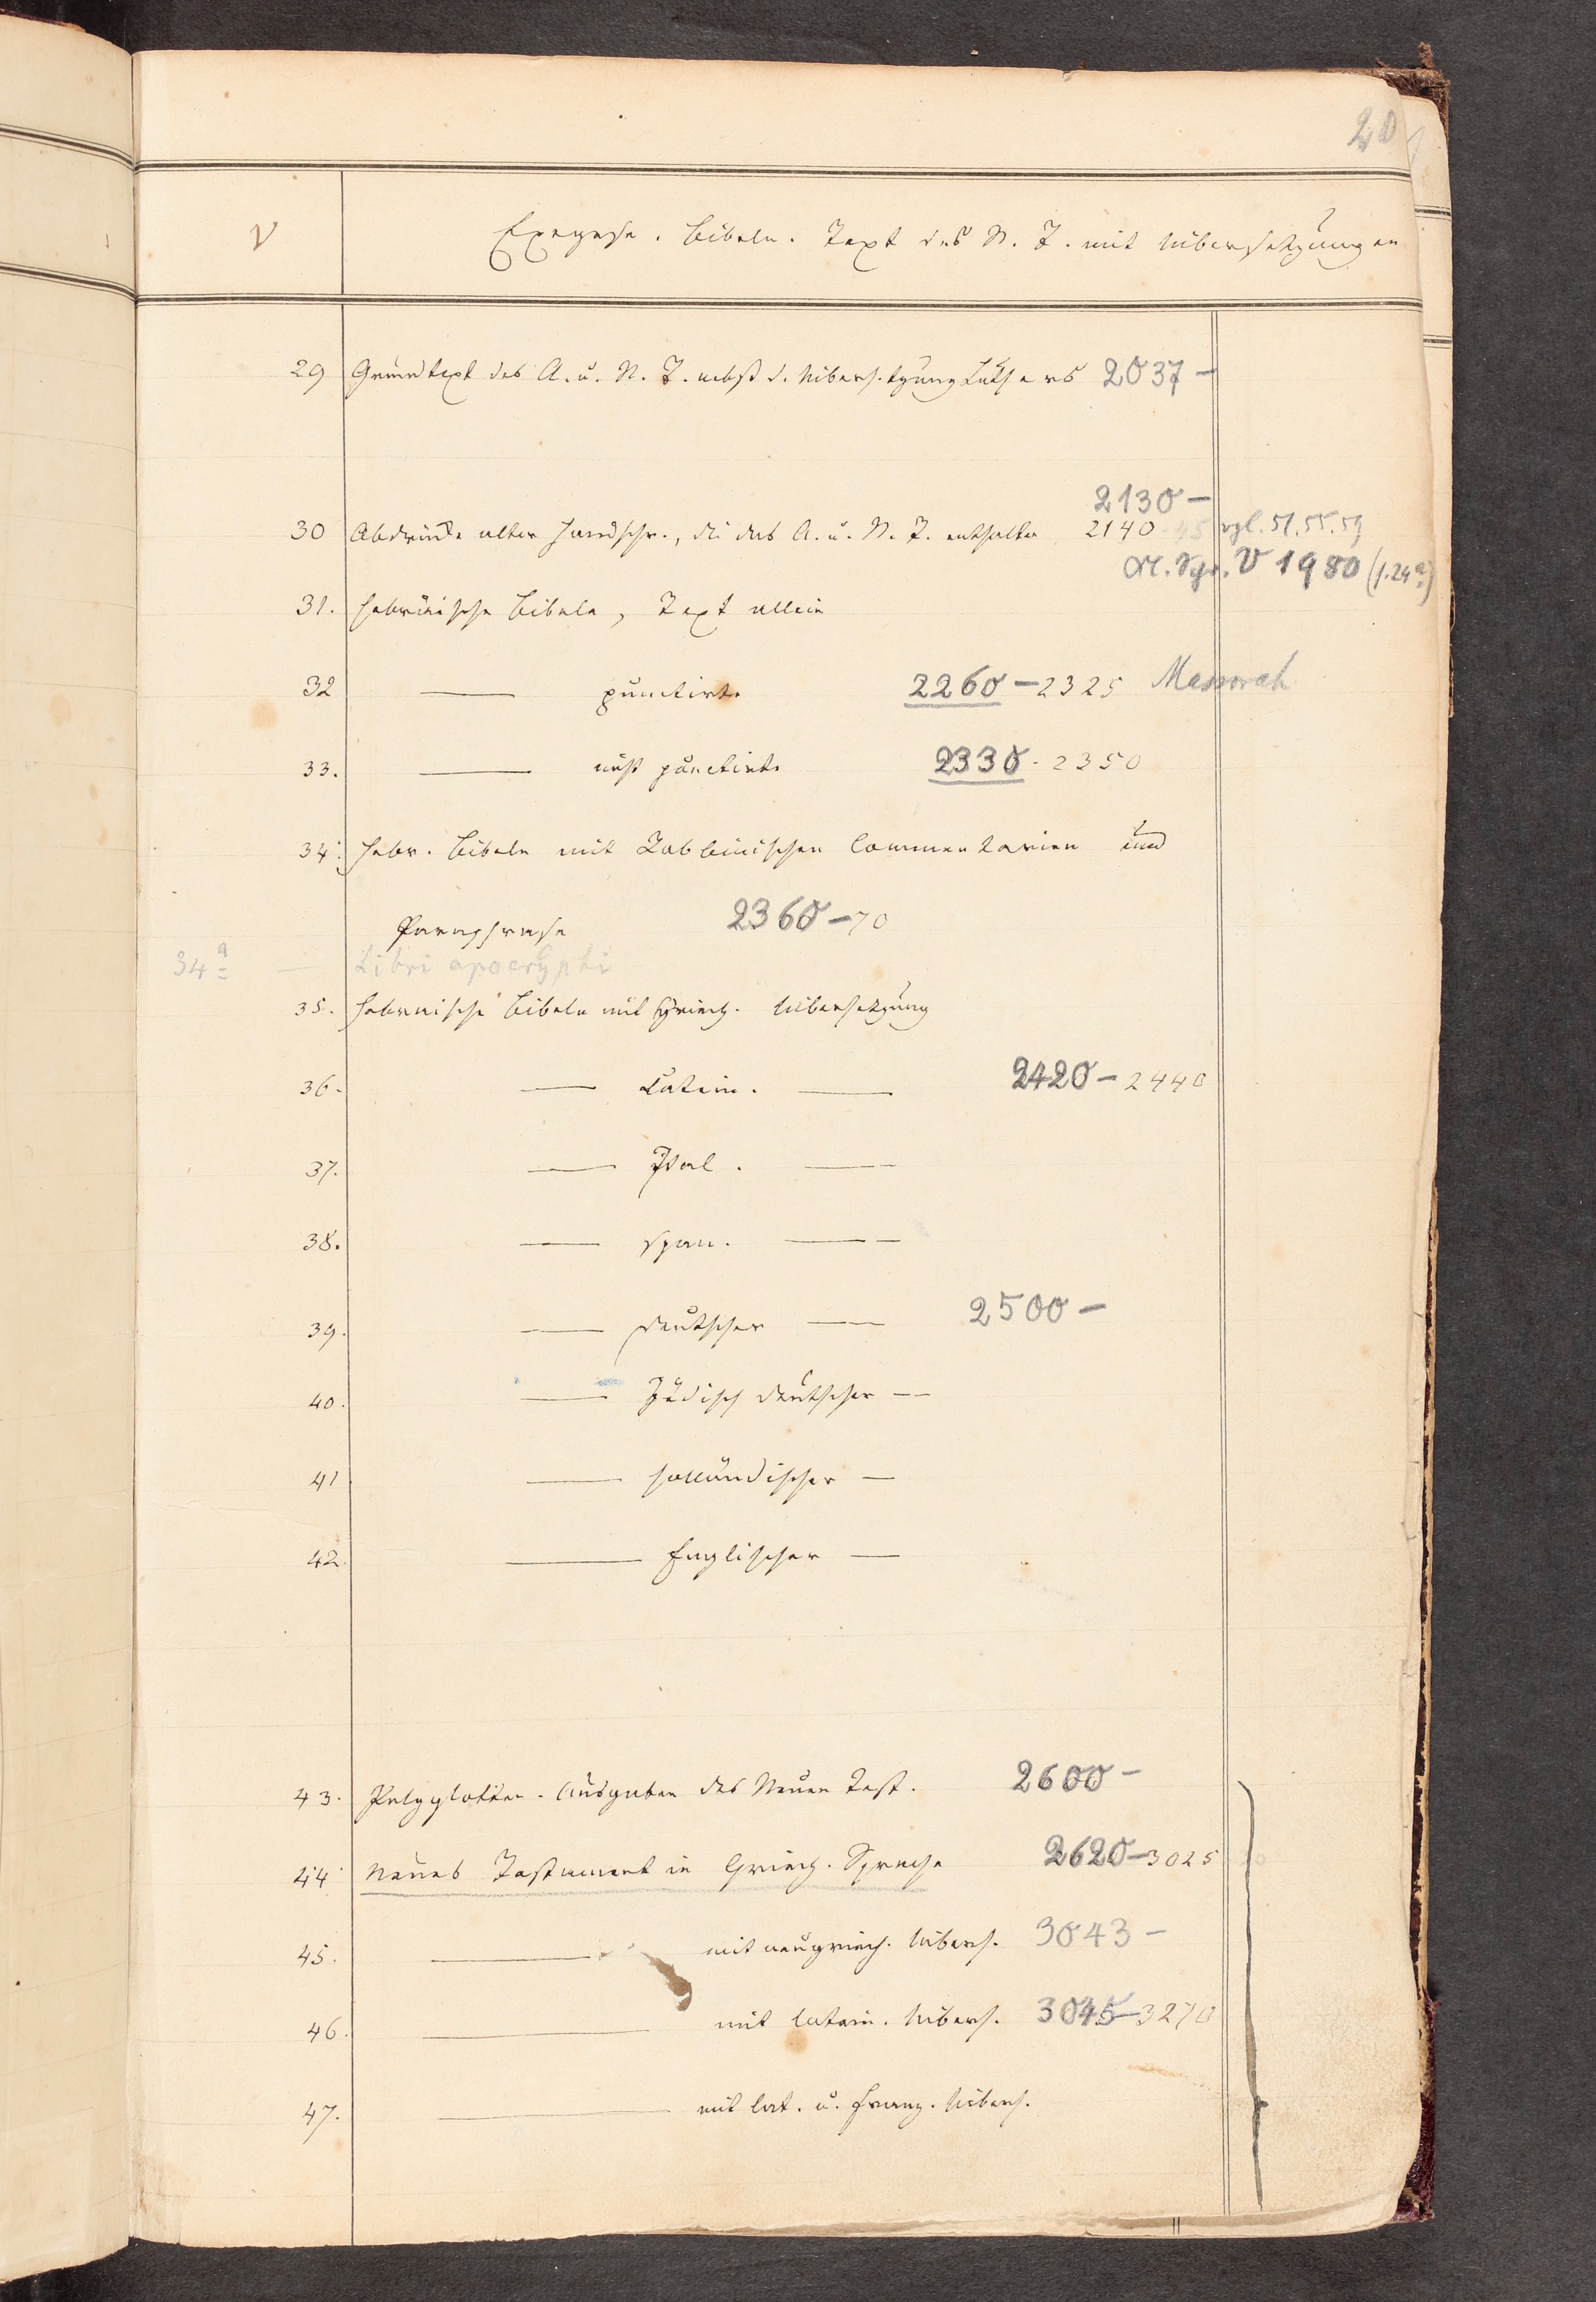 20
V Exegese. Bibeln. Text des N. T. mit Uebersetzungen
29 Grundtext des A. u. N. T. nebst d. Uebersetzung Luthers 2037 -
2130 -
30 Abdrücke alter Handschr., die das A. u. N. T. enthalten 2140 - 45 vgl. 51.55.59
V 1980 (f. 24a)
31. Hebräische Bibeln, Text allein
32 — punctirte 2260 - 2325 Massorah
33. — nicht punctirte 2330 - 2350
34. Hebr. Bibeln mit Rabbinischen Commentarien und
Paraphrase 2360 - 70
34a — Libri apocryphi
35. Hebräische Bibeln mit Griech. Uebersetzung
36. — Latein. — 2420 - 2440
37. — Ital. —
38. — Span. —
39. — deutscher — 2500 -
40. — Jüdisch deutscher —
41 — holländischer —
42. — Englischer —
43. Polyglotten-Ausgaben des Neuen Test. 2600 -
44 Neues Testament in Griech. Sprache 2620 - 3025
45. — mit neugriech. Uebers. 3043 -
46. — mit latein. Uebers. 3045 - 3270
47. — mit lat. u. franz. Uebers.